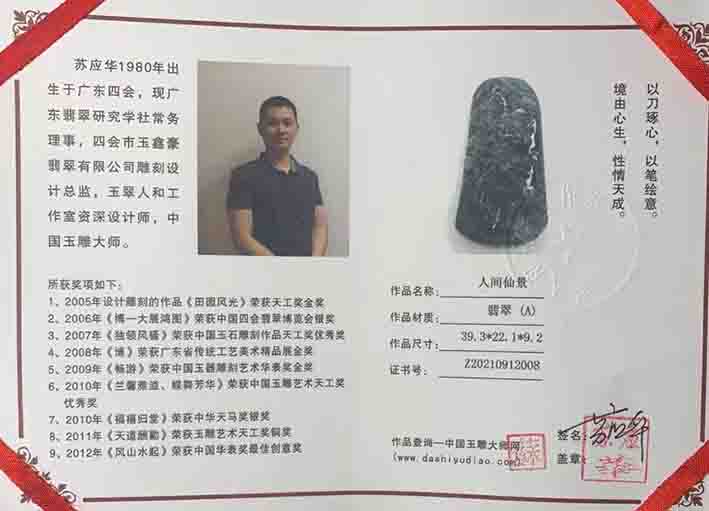 苏应华1980年出
生于广东四会，现广
东翡翠研究学社常务
理事，四会市玉鑫豪
翡翠有限公司雕刻设
计总监，玉翠人和工
作室资深设计师，中
国玉雕大师。
所获奖项如下：
1、2005年设计雕刻的作品《田园风光》荣获天工奖金奖
2、2006年《博一大展鸿图》荣获中国四会翡翠博览会银奖
3、2007年《独领风骚》荣获中国玉石雕刻作品天工奖优秀奖
4、2008年《博》荣获广东省传统工艺美术精品展金奖
5、2009年《畅游》荣获中国玉器雕刻艺术华表奖金奖
6、2010年《兰馨雅道、蝶舞芳华》荣获中国玉雕艺术天工奖
优秀奖
7、2010年《福禧归堂》荣获中华天马奖银奖
8、2011年《天道酬勤》荣获玉雕艺术天工奖铜奖
9、2012年《风山水起》荣获中国华表奖最佳创意奖
以刀琢心，以笔绘意。
境由心生，性情天成。
作品名称：人间仙景
作品材质：翡翠（A）
作品尺寸：39.3*22.1*9.2
证书号：Z20210912008
作品查询—中国玉雕大师网
(www.dashiyudiao.com)
签名：苏应华
盖章：